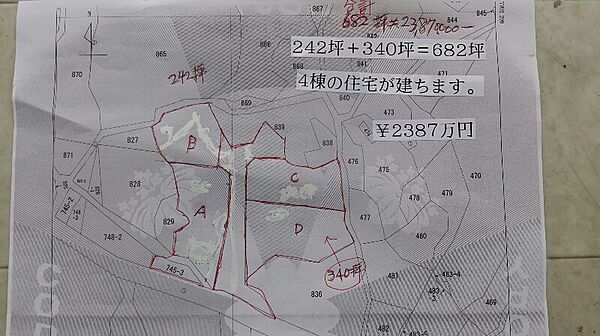 合計
682坪 ¥23,870,000-
242坪+340坪=682坪
4棟の住宅が建ちます。
¥2387万円
242坪
340坪
A
B
C
D
870
865
866
867
844
845
869
840
839
838
827
828
829
871
748-2
745-2
745-3
836
475
476
477
478
479
470
471
480
481
482
483-4
469